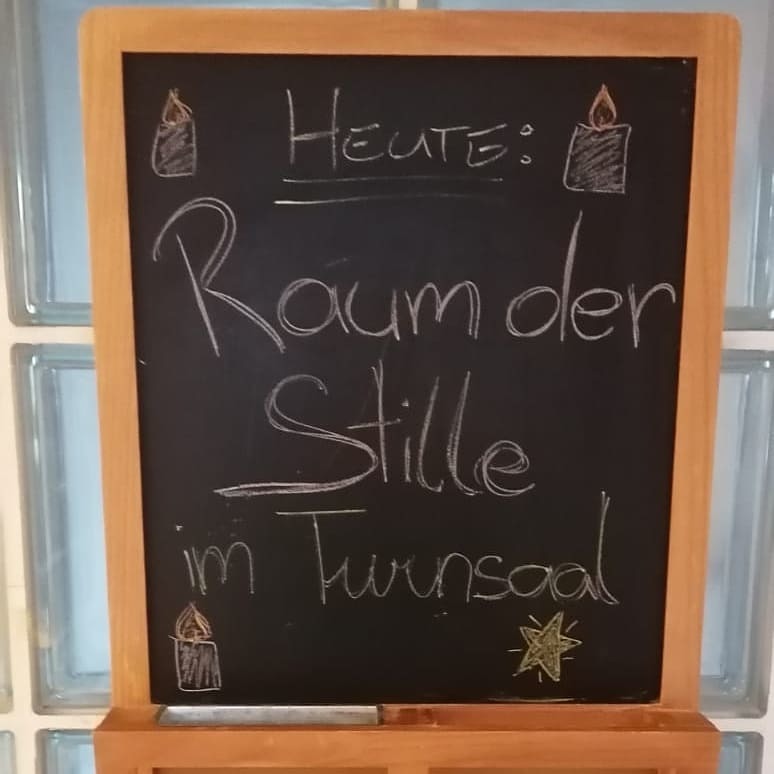 HEUTE:
Raum der
Stille
im Turnsaal